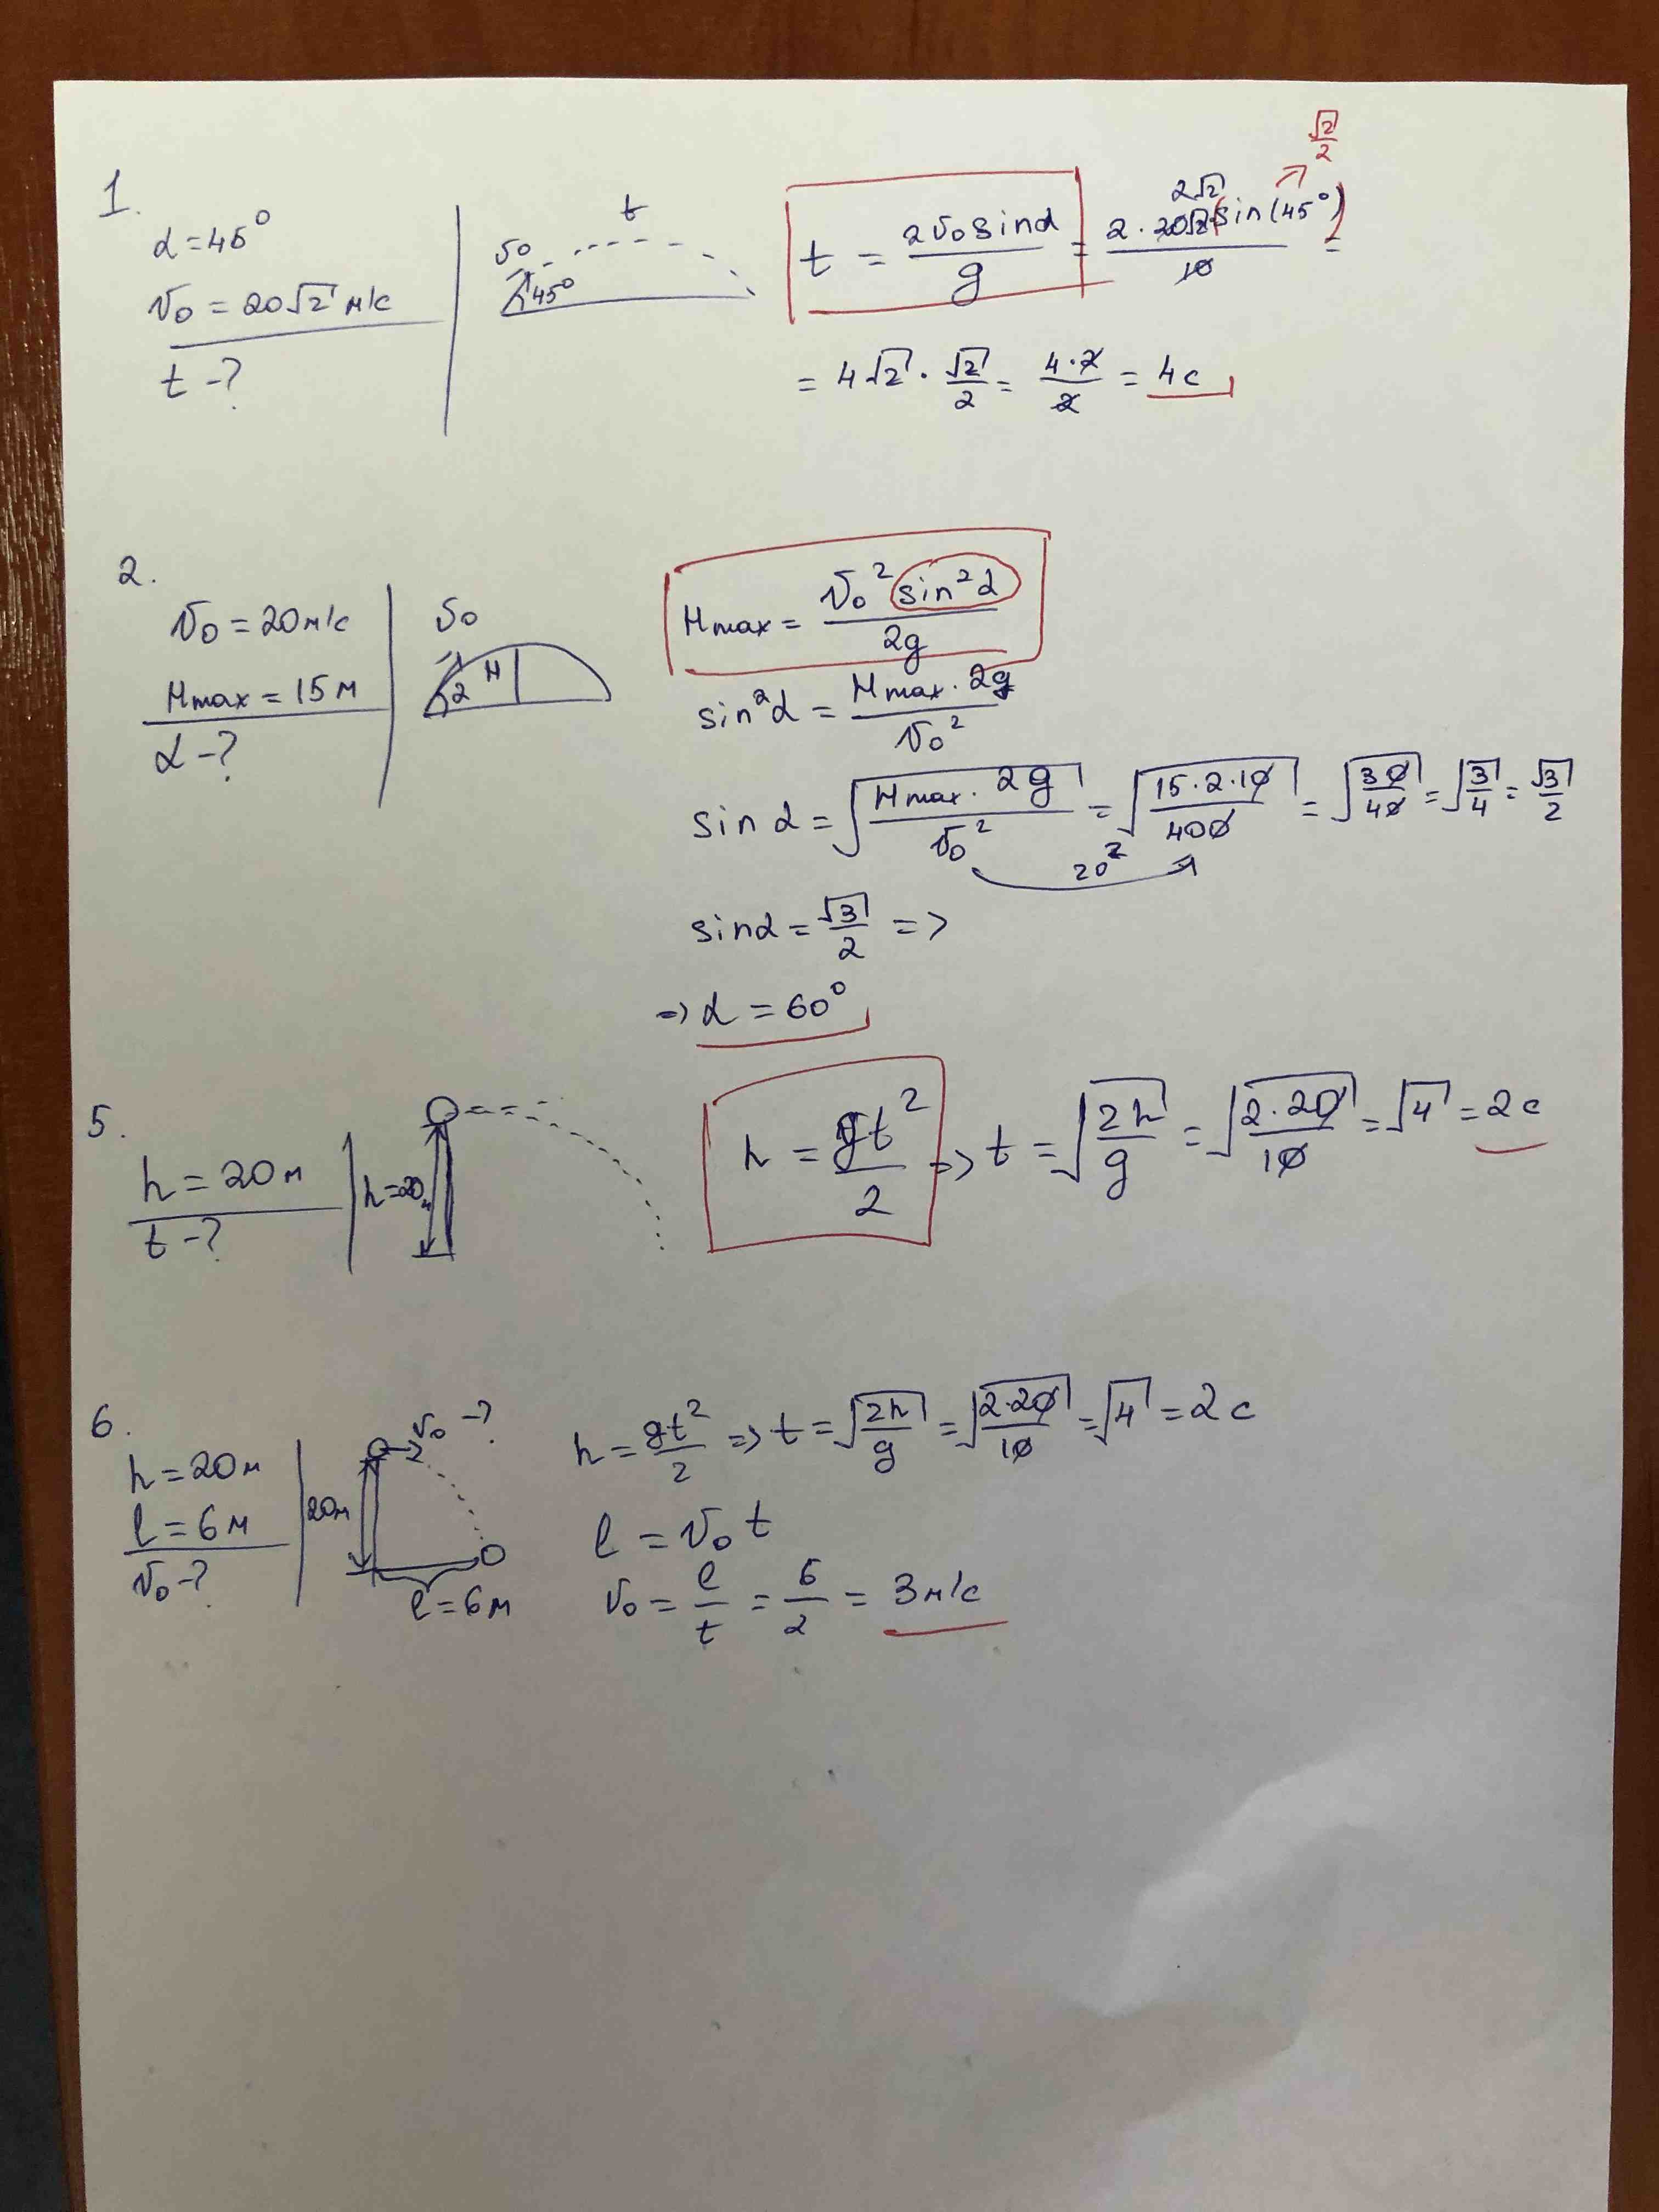 1.
α = 45°
v₀ = 20√2 м/с
t - ?
t
v₀
45°
t = 2v₀sinα / g = 2 · 20√2 · sin(45°) / 10 =
2√2
√2/2
= 4√2 · √2/2 = 4·2/2 = 4 с
2.
v₀ = 20 м/с
Hmax = 15 м
α - ?
v₀
H
α
Hmax = v₀² sin²α / 2g
sin²α = Hmax · 2g / v₀²
sin α = √(Hmax · 2g / v₀²) = √(15·2·10 / 400) = √(30/40) = √(3/4) = √3/2
20²
sinα = √3/2 =>
=> α = 60°
5.
h = 20 м
t - ?
h = 20 м
h = gt²/2 => t = √(2h/g) = √(2·20/10) = √4 = 2 с
6.
h = 20 м
l = 6 м
v₀ - ?
v₀ - ?
20 м
l = 6 м
h = gt²/2 => t = √(2h/g) = √(2·20/10) = √4 = 2 с
l = v₀ t
v₀ = l/t = 6/2 = 3 м/с